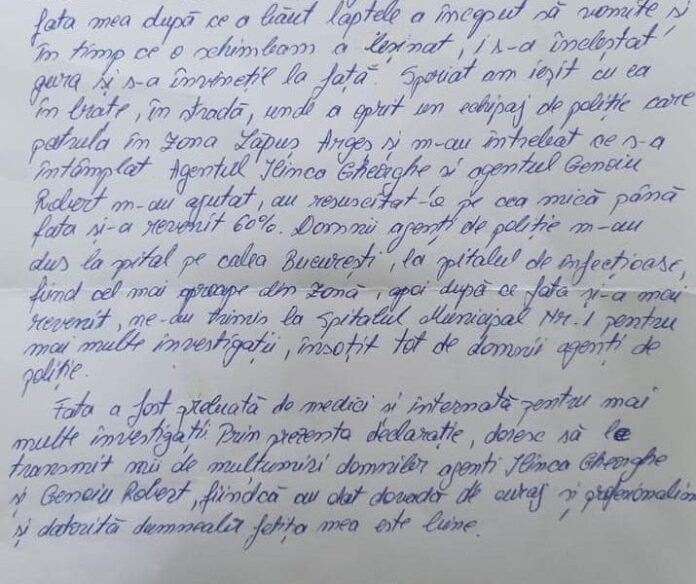 fata mea după ce a băut laptele a început să vomite și
în timp ce o schimbam a leșinat, i s-a încleștat
gura și s-a învinețit la față. Speriat am ieșit cu ea
în brate, în stradă, unde a oprit un echipaj de poliție care
patrula în zona Lăpuș Argeș și m-au întrebat ce s-a
întâmplat. Agentul Ilinca Gheorghe și agentul Genoiu
Robert m-au ajutat, au resuscitat-o pe cea mică până
fata și-a revenit 60%. Domnii agenți de poliție m-au
dus la spital pe calea București, la spitalul de infecțioase,
fiind cel mai aproape din zonă, apoi după ce fata și-a mai
revenit, ne-au trimis la Spitalul Municipal Nr. 1 pentru
mai multe investigații, însoțit tot de domnii agenți de
poliție.
Fata a fost preluată de medici si internată pentru mai
multe investigații. Prin prezenta declarație, doresc să le
transmit mii de mulțumiri domnilor agenti Ilinca Gheorghe
și Genoiu Robert, fiindcă au dat dovadă de curaj și profesionalism
și datorită dumnealor fetița mea este bine.